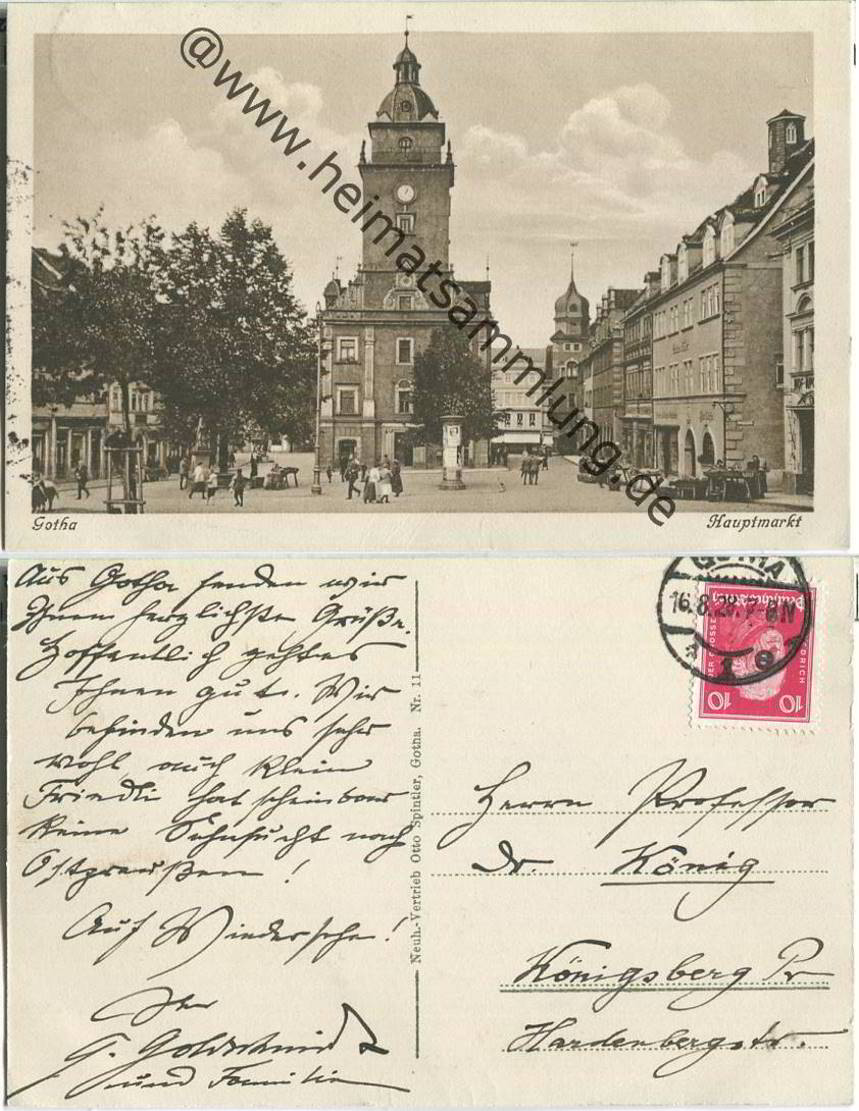 @www.heimatsammlung.de
Gotha
Hauptmarkt
Aus Gotha senden wir
Ihnen herzlichste Grüße.
Hoffentlich geht es
Ihnen gut. Wir
befinden uns sehr
wohl, auch klein
Friedli hat scheinbar
keine Sehnsucht nach
Ostpreußen!
Auf Wiedersehen!
Ihr
G. Goldschmidt
und Familie
Neuh.-Vertrieb Otto Spintler, Gotha. Nr. 11
GOTHA
16.8.28.7-8N
Deutsches Reich
10 10
Herrn Professor
Dr. König
Königsberg Pr
Hardenbergstr.